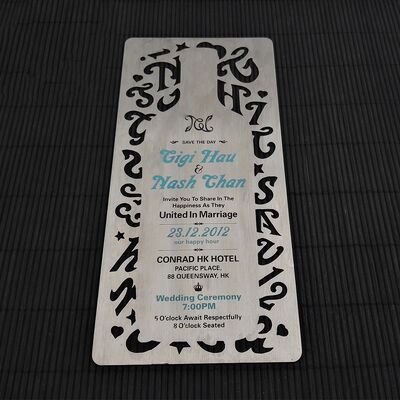 SAVE THE DAY
Gigi Hau
&
Nash Chan
Invite You To Share In The
Happiness As They
United In Marriage
23.12.2012
our happy hour
CONRAD HK HOTEL
PACIFIC PLACE,
88 QUEENSWAY, HK
Wedding Ceremony
7:00PM
5 O'clock Await Respectfully
8 O'clock Seated